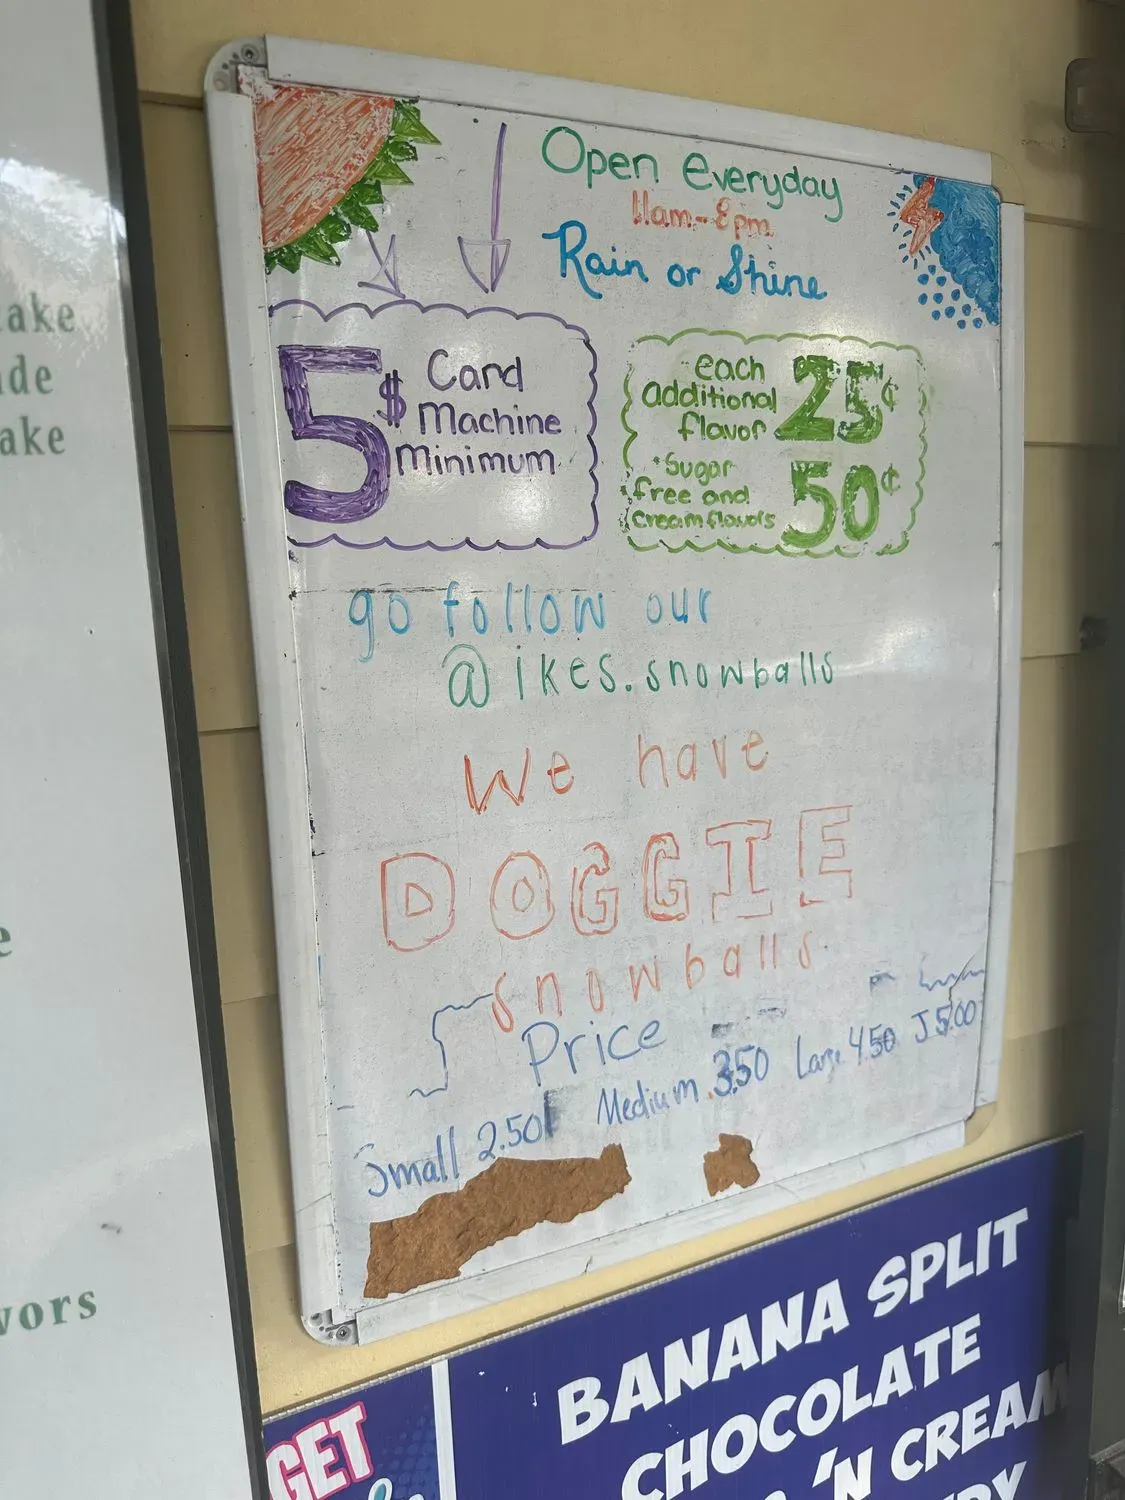 Open everyday
11am-8pm
Rain or Shine
5$ Card
Machine
Minimum
each
additional
flavor 25¢
*Sugar
free and
cream flavors 50¢
go follow our
@ikes.snowballs
We have
DOGGIE
snowballs
Price
Small 2.50 Medium 3.50 Large 4.50 J 5.00
ake
de
ake
e
vors
GET
BANANA SPLIT
CHOCOLATE
'N CREAM